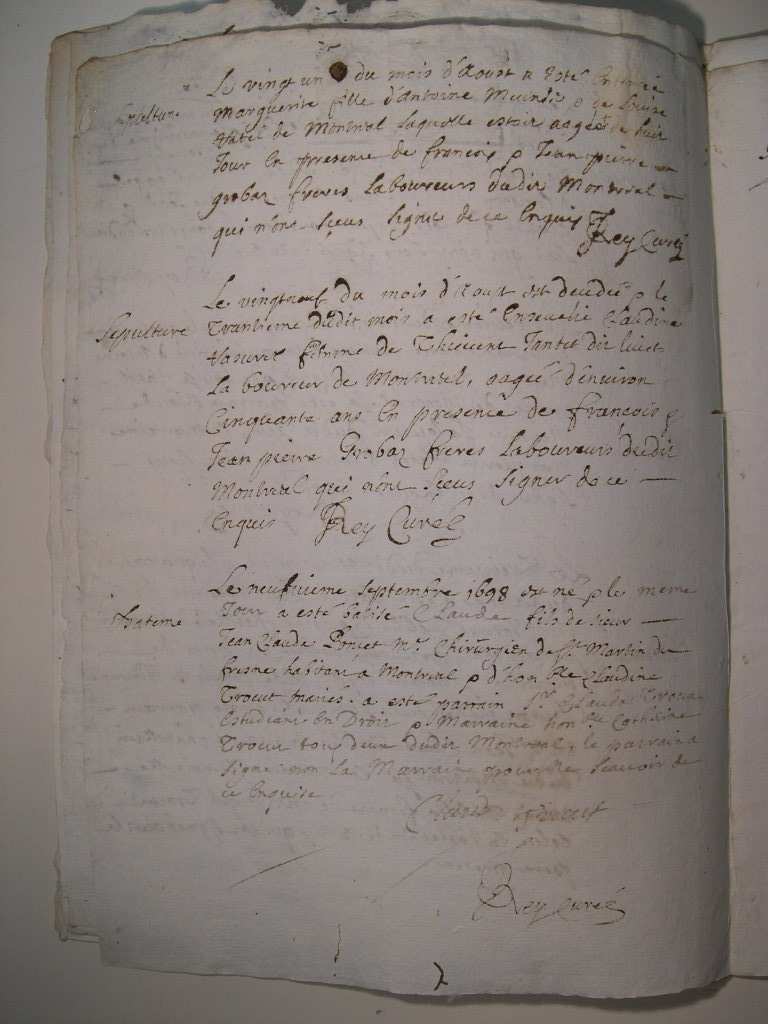 Sepulture
Le vingt un du mois d'Aoust a esté Enterré
Marguerite fille d'Antoine & de Louise
de Montreal Laquelle estoit aagée de huit
Jour En presence de francois & Jean pierre
grobaz freres Laboureurs dudit Montreal
qui n'ont sçeus signer de ce Enquis Rey Curé
Sepulture
Le vingtneuf du mois d'Aoust est decedée & le
Trantieme dudit mois a esté Ensevelie Claudine
femme de Tantet dit
Laboureur de Montreal, aagée d'environ
Cinquante ans En presence de françois &
Jean pierre Grobaz freres Laboureurs dudit
Montreal qui n'ont sçeus signer de ce
Enquis Rey Curé
Bateme
Le neufvieme septembre 1698 est né & le meme
Jour a esté batisé Claude fils de sieur
Jean Claude Poncet Mr. Chirurgien de St. Martin du
fresne habitant a Montreal & d'hon.ble Claudine
Trocut mariés. a esté parrain Sr. Claude Trocut
Estudiant En Droit & Marraine hon.ble Catherine
Trocut tou deux dudit Montreal, le parrain a
signé non La Marraine pour ne sçavoir de
ce Enquise
Rey Curé